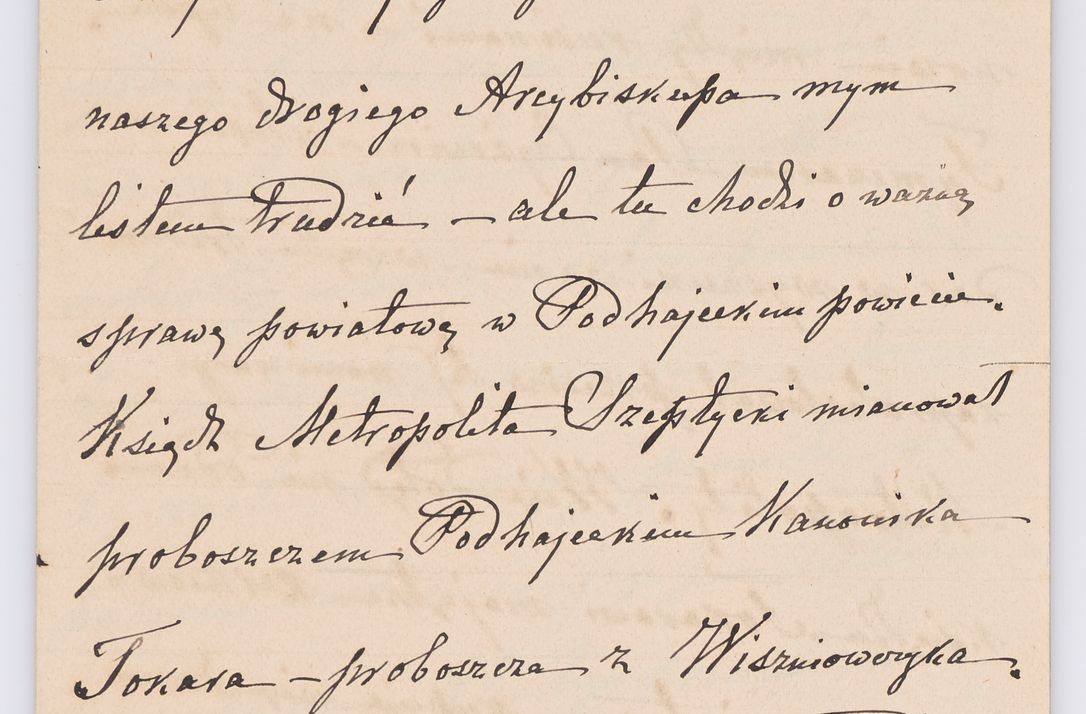 naszego drogiego Arcybiskupa mym
listem trudzić – ale tu chodzi o ważną
sprawę powiatową w Podhajeckim powiecie.
Ksiądz Metropolita Szeptycki mianował
proboszczem Podhajeckim Kanonika
Tokara – proboszcza z Wiszniowczyka.